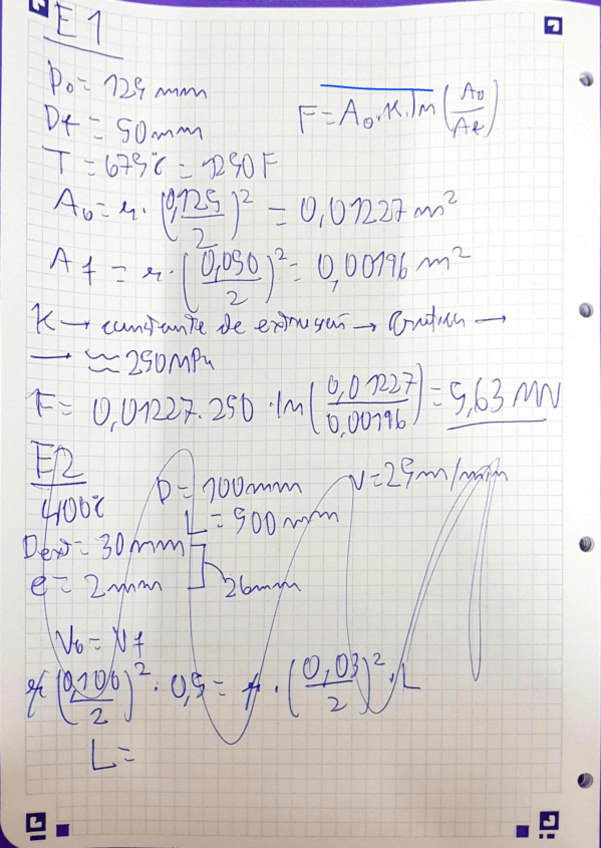 E1
D₀ = 125 mm
F = A₀.K.ln(A₀/Af)
Df = 50mm
T = 675°C = 1250F
A₀ = π.(0,125/2)² = 0,01227 m²
Af = π.(0,050/2)² = 0,00196 m²
K → constante de extrusão → →
→ ≈ 250MPa
F = 0,01227.250.ln(0,01227/0,00196) = 5,63 MN
E2
400°C D = 100mm V = 25m/min
L = 500 mm
Dext = 30mm
e = 2mm 26mm
V₀ = Vf
π(0,100/2)².0,5 = π.(0,03/2)².L
L =